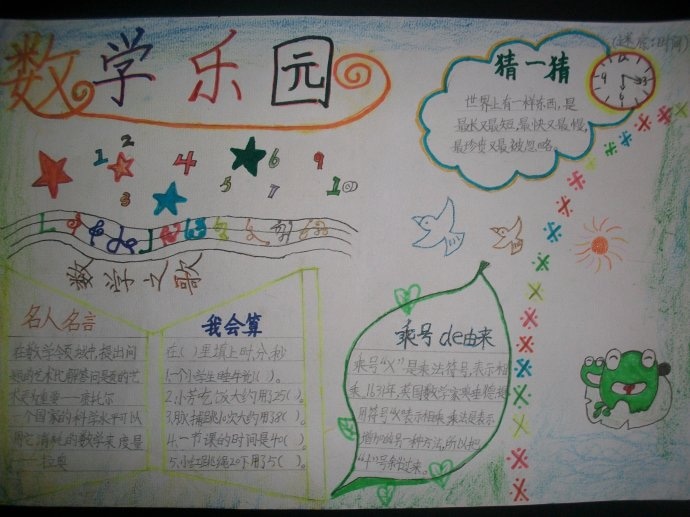 数学乐园
猜一猜
世界上有一样东西,是
最长又最短,最快又最慢,
最珍贵又最被忽略。
1 2 3 4 5 6 7 9 10
数学之歌
名人名言
在数学领域中,提出问
题的艺术比解答问题的艺
术更为重要——康托尔
一个国家的科学水平可以
用它消耗的数学来度量
——拉奥
我会算
在( )里填上时、分、秒
1.一个小学生睡午觉1( )。
2.小芳吃饭大约用25( )。
3.脉搏跳10次大约用8( )。
4.一节课的时间是40( )。
5.小红跳绳20下用了5( )。
乘号de由来
乘号“X”是乘法符号,表示相
乘,1631年,英国数学家奥垂德提
用符号“X”表示相乘,乘法是表示
增加的另一种方法,所以把
“十”号斜过来。